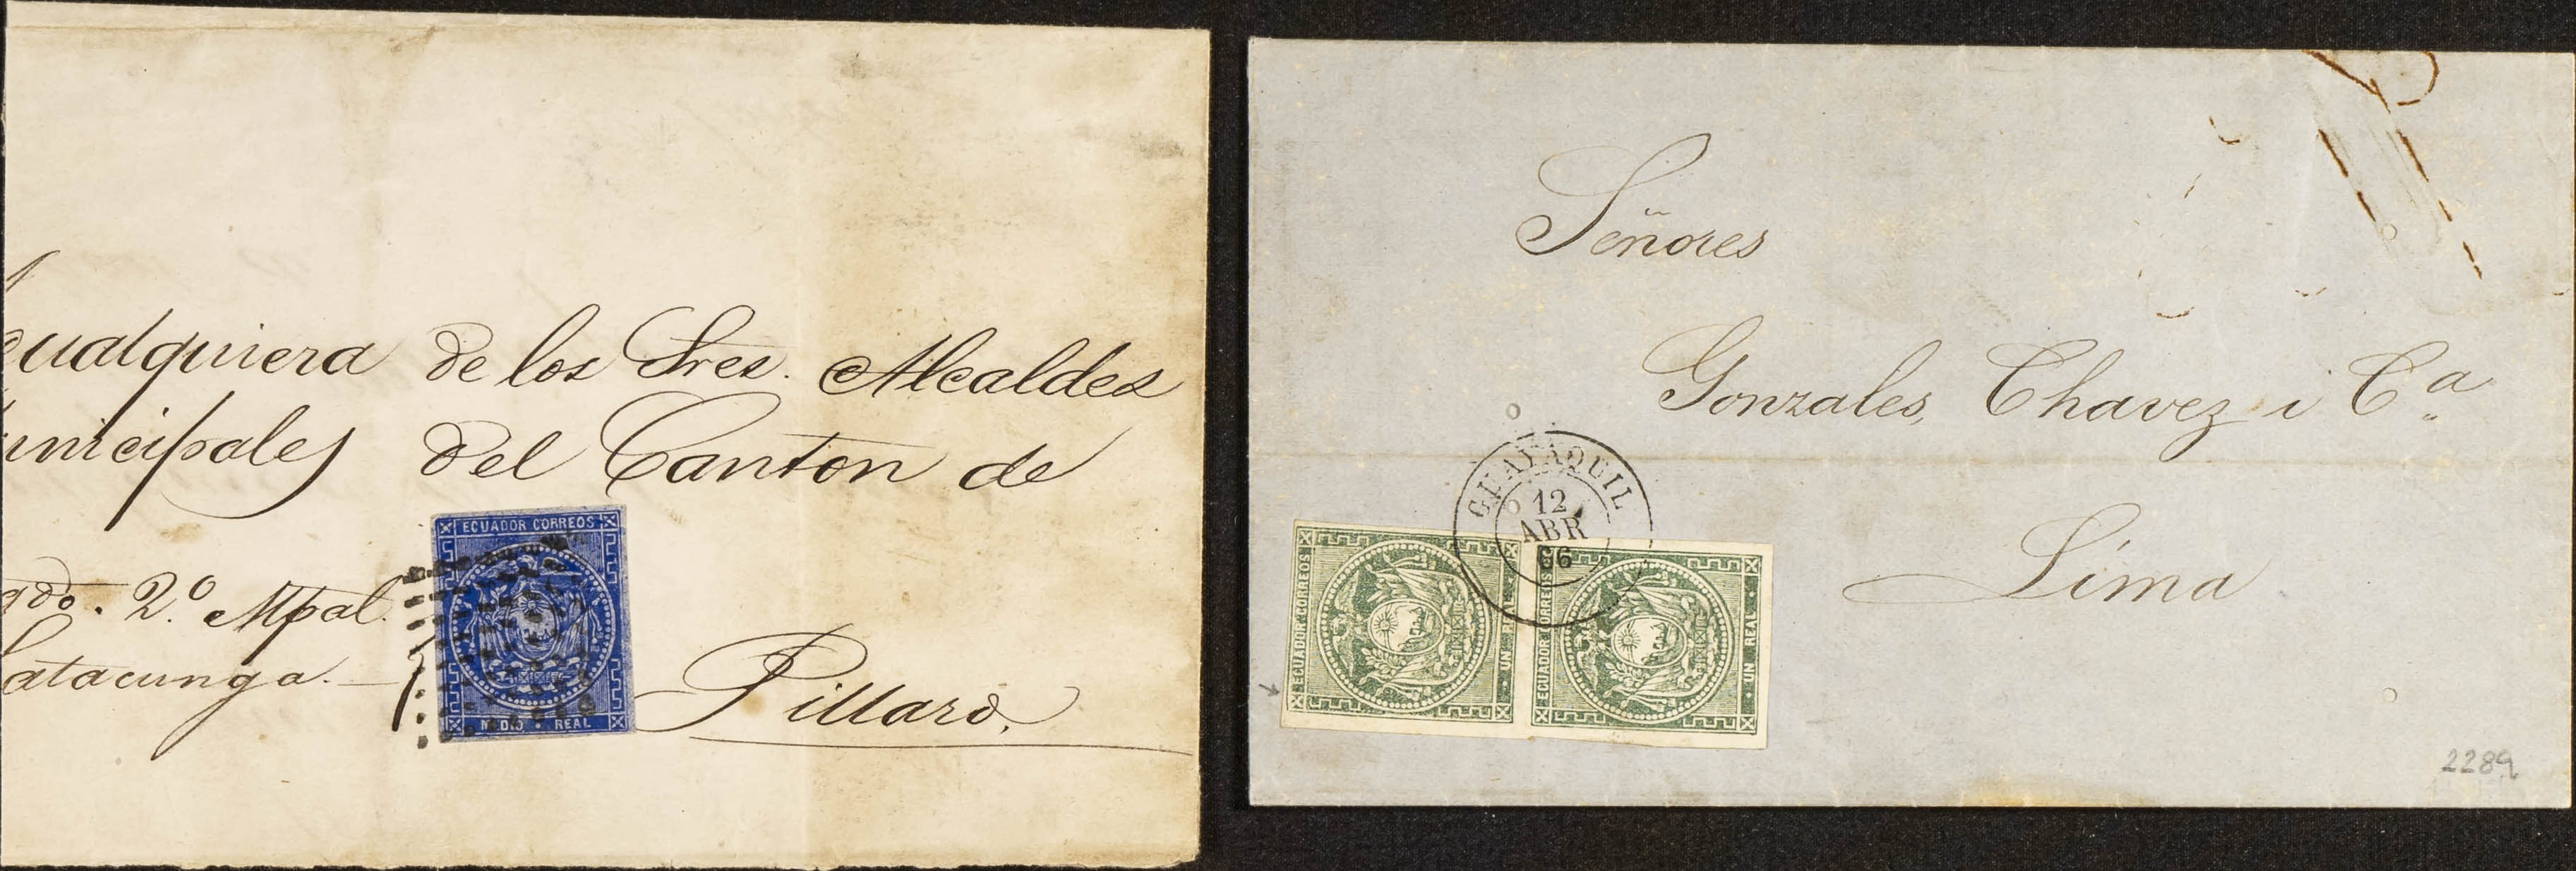 cualquiera de los Sres. Alcaldes
unicipales del Canton de
gdo. 2º Mpal.
Latacunga.—
Pillaro.
ECUADOR CORREOS
MEDIO REAL
Señores
Gonzales, Chavez i Cª
Lima
GUAYAQUIL
12
ABR
66
ECUADOR CORREOS
UN REAL
ECUADOR CORREOS
UN REAL
2289